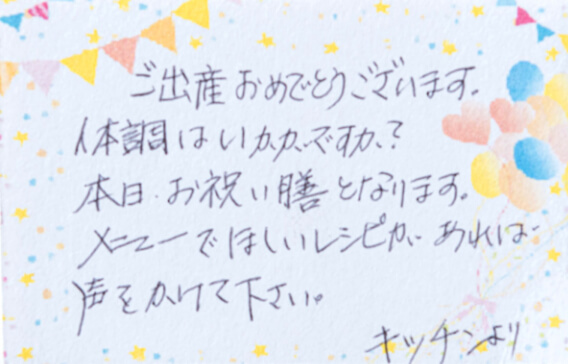 ご出産おめでとうございます。
体調はいかがですか?
本日、お祝い膳となります。
メニューでほしいレシピがあれば
声をかけて下さい。
キッチンより